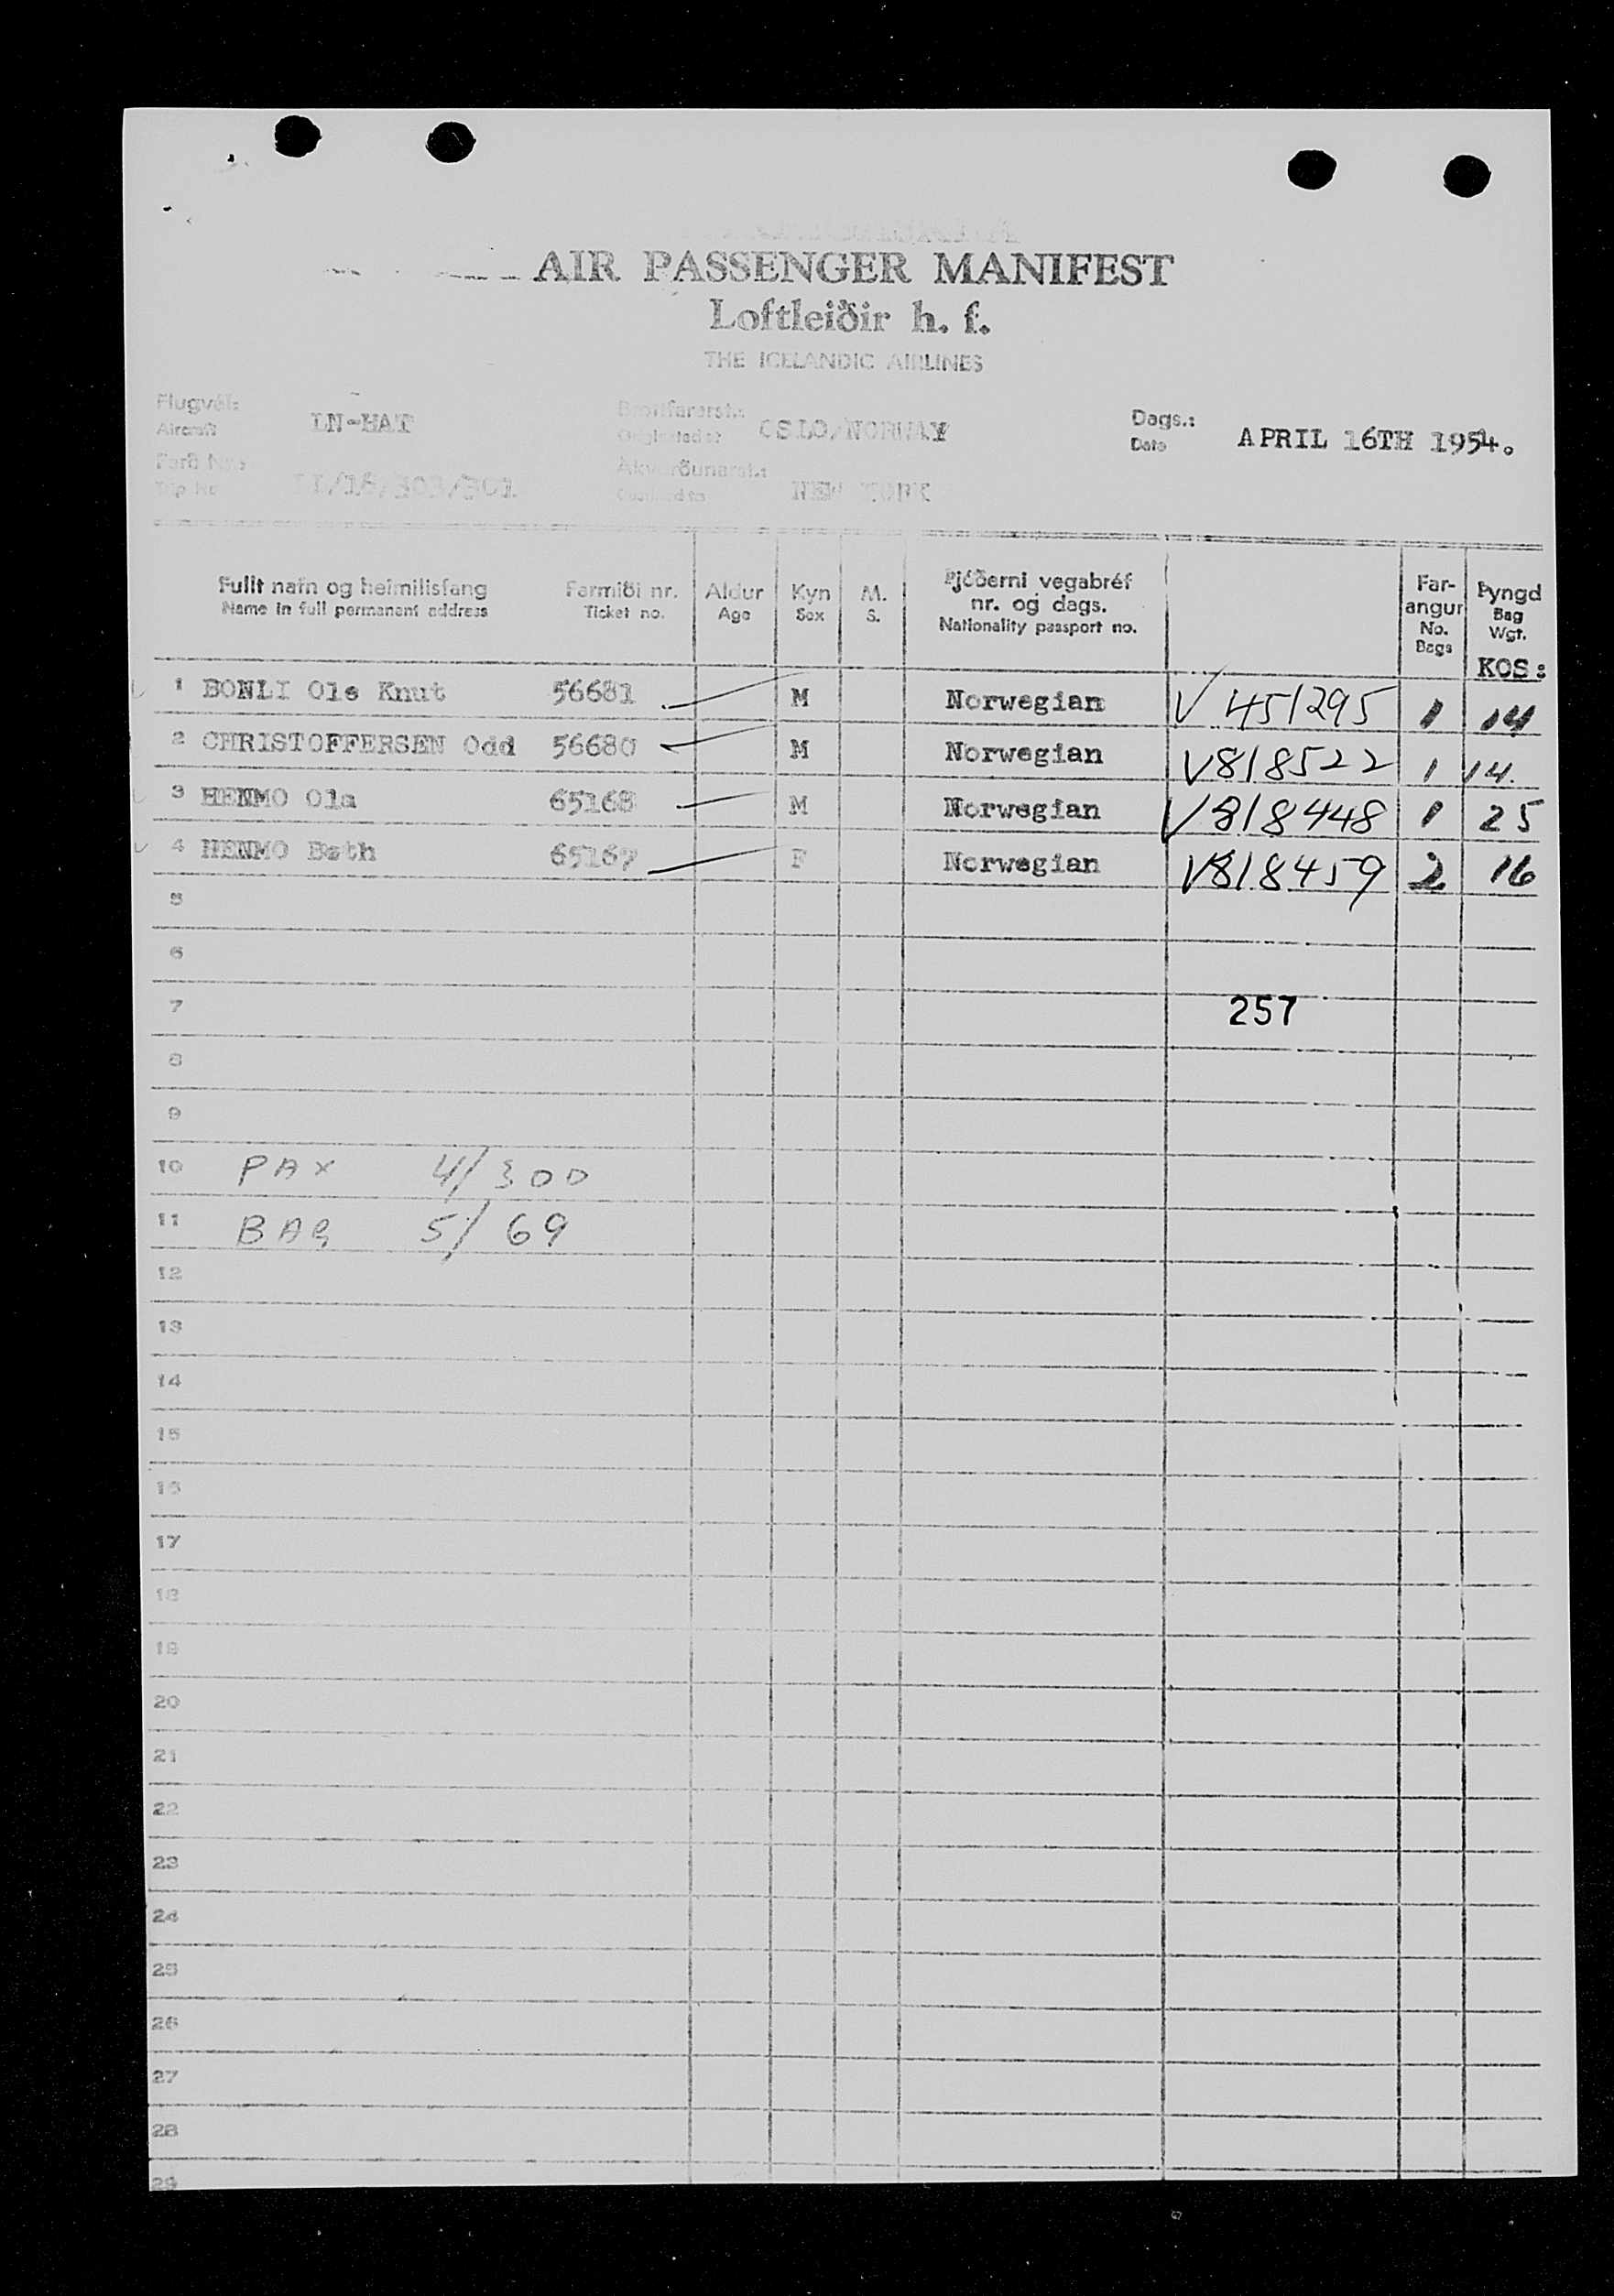 AIR PASSENGER MANIFEST
Loftleiðir h. f.
THE ICELANDIC AIRLINES
Flugvél:
Aircraft
LN-HAT
OSLO/NORWAY
Dags.:
Date
APRIL 16TH 1954.
Trip No
NEW YORK
Fullt nafn og heimilisfang
Name in full permanent address
Farmiði nr.
Ticket no.
Aldur
Age
Kyn
Sex
M.
S.
Þjóðerni vegabréf
nr. og dags.
Nationality passport no.
Far-
angur
No.
Bags
Þyngd
Bag
Wgt.
KOS:
1 BONLI Ole Knut 56681 M Norwegian V 451295 1 14
2 CHRISTOFFERSEN Odd 56680 M Norwegian V818522 1 14.
3 HENMO Ola 65168 M Norwegian V818448 1 25
4 HENMO Beth 65167 F Norwegian V818459 2 16
5
6
7 257
8
9
10 PAX 4/300
11 BAG 5/69
12
13
14
15
16
17
18
19
20
21
22
23
24
25
26
27
28
29